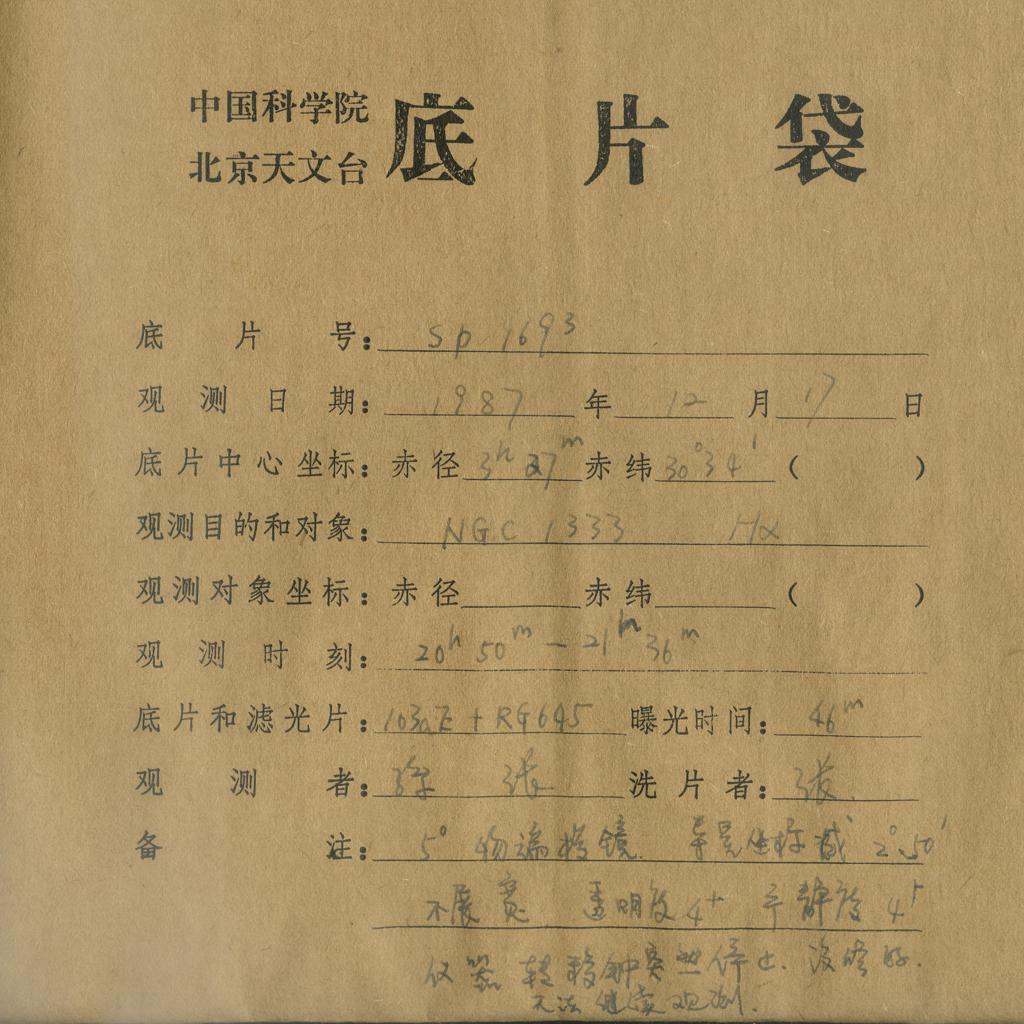 中国科学院
北京天文台
底片袋
底片号：Sp 1693
观测日期：1987年12月17日
底片中心坐标：赤径 3h 27m 赤纬 30°34′（ ）
观测目的和对象：NGC 1333 Hα
观测对象坐标：赤径 赤纬 （ ）
观测时刻：20h 50m — 21h 36m
底片和滤光片：103aE + RG645 曝光时间：46m
观测者：张 洗片者：张
备注：5° 物端棱镜 导星坐标减 2°50′
不展宽 透明度 4+ 宁静度 4+
仪器转移钟突然停止. 没修好.
无法继续观测.